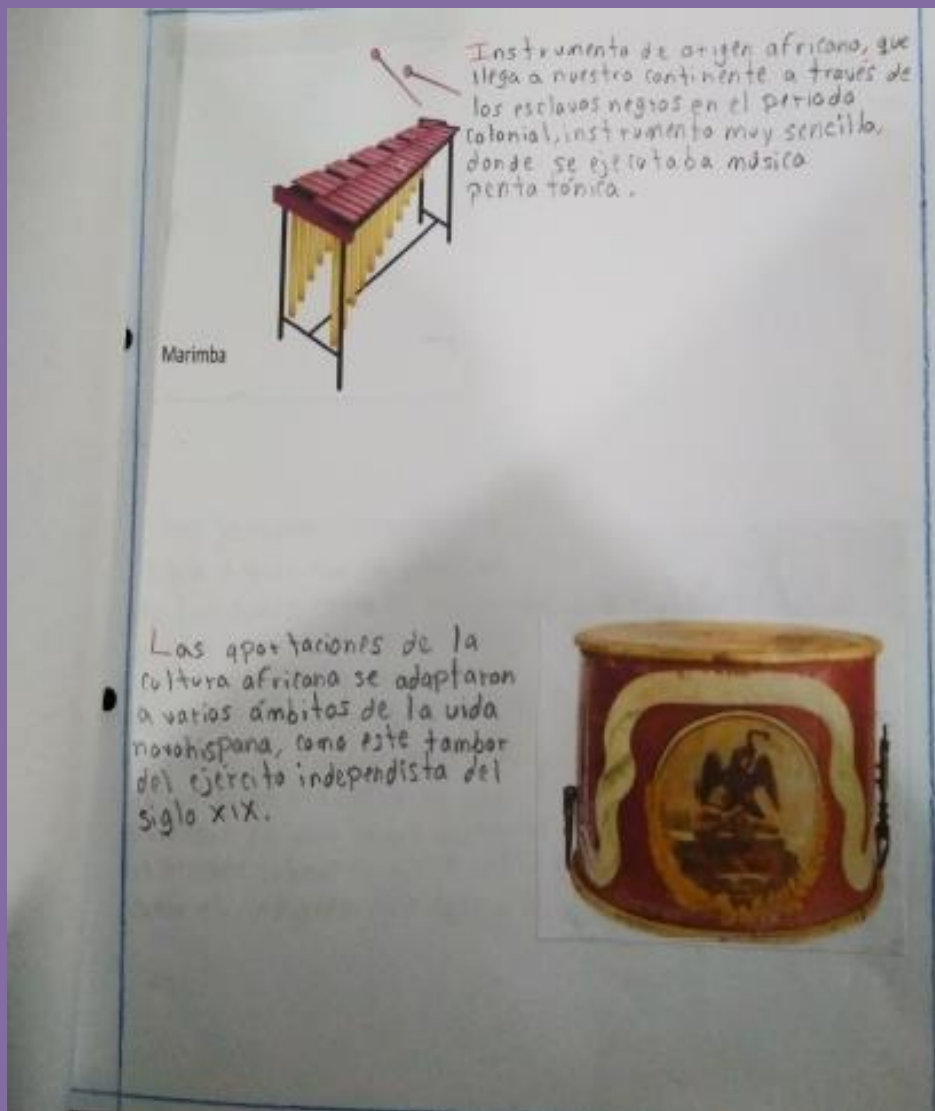 Instrumento de origen africano, que
llega a nuestro continente a través de
los esclavos negros en el periodo
colonial, instrumento muy sencillo,
donde se ejecutaba música
pentatónica.
Marimba
Las aportaciones de la
cultura africana se adaptaron
a varios ámbitos de la vida
novohispana, como este tambor
del ejército independista del
siglo XIX.